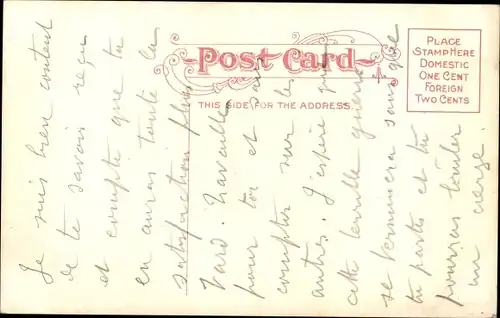 Post Card
THIS SIDE FOR THE ADDRESS.
PLACE
STAMP HERE
DOMESTIC
ONE CENT
FOREIGN
TWO CENTS
Je suis bien content
de te savoir reçu
et compte que tu
en auras toute la
satisfaction plus
tard. travaille
pour toi et
compter sur les
autres. J'espère que
cette terrible guerre
se terminera sans que
tu partes et tu
pourras brûler
un cierge.